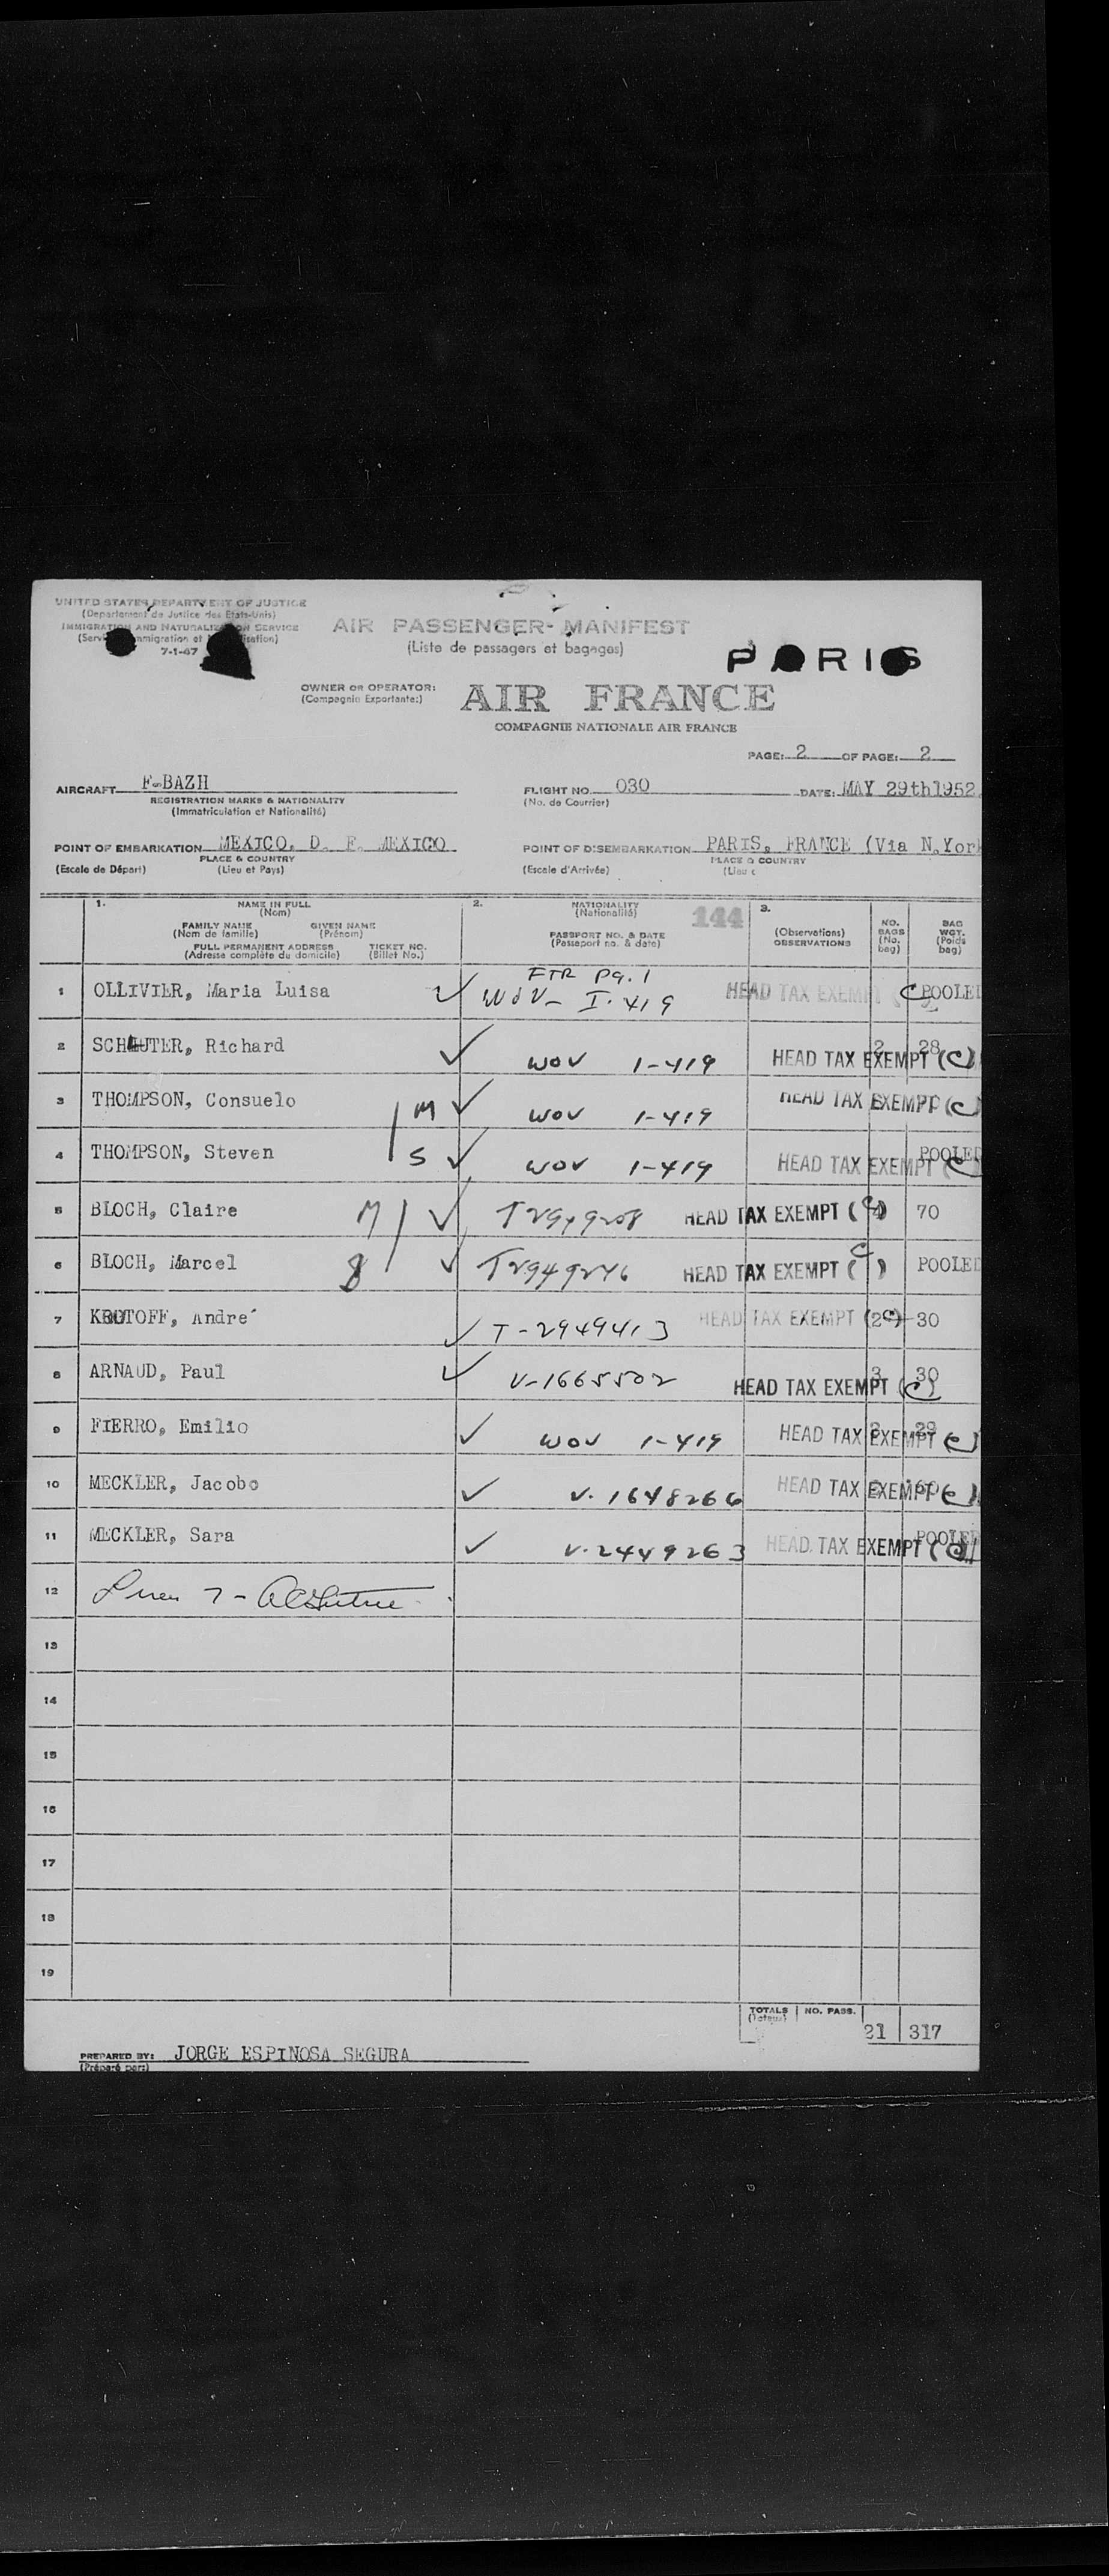 UNITED STATES DEPARTMENT OF JUSTICE
(Departement de Justice des Etats-Unis)
IMMIGRATION AND NATURALIZATION SERVICE
7-1-47
AIR PASSENGER MANIFEST
(Liste de passagers et bagages)
PARIS
OWNER OR OPERATOR:
(Compagnie Exportante:)
AIR FRANCE
COMPAGNIE NATIONALE AIR FRANCE
PAGE: 2 OF PAGE: 2
AIRCRAFT F-BAZH FLIGHT NO. 030 DATE: MAY 29th1952
REGISTRATION MARKS & NATIONALITY (No. de Courrier)
(Immatriculation et Nationalité)
POINT OF EMBARKATION MEXICO, D. F. MEXICO POINT OF DISEMBARKATION PARIS, FRANCE (Via N.York
PLACE & COUNTRY PLACE & COUNTRY
(Escale de Départ) (Lieu et Pays) (Escale d'Arrivée) (Lieu
1. NAME IN FULL 2. NATIONALITY 144 3.
(Nom) (Nationalité)
FAMILY NAME GIVEN NAME NO. BAGS BAG WGT.
(Nom de famille) (Prénom) PASSPORT NO. & DATE (Observations) (No. bag) (Poids bag)
FULL PERMANENT ADDRESS TICKET NO. (Passeport no. & date) OBSERVATIONS
(Adresse complète du domicile) (Billet No.)
FTR Pg. 1
1 OLLIVIER, Maria Luisa WOV- I-419 HEAD TAX EXEMPT C POOLED
2 Richard WOV 1-419 HEAD TAX EXEMPT (C) 2 28
3 THOMPSON, Consuelo M WOV 1-419 HEAD TAX EXEMPT (C)
4 THOMPSON, Steven S WOV 1-419 HEAD TAX EXEMPT (C) POOLED
5 BLOCH, Claire M HEAD TAX EXEMPT (C) 70
6 BLOCH, Marcel T2949246 HEAD TAX EXEMPT (C) POOLED
7 André T-2949413 HEAD TAX EXEMPT (C) 2 30
8 ARNAUD, Paul V-1665502 HEAD TAX EXEMPT (C) 3 30
9 FIERRO, Emilio WOV 1-419 HEAD TAX EXEMPT (C) 29
10 MECKLER, Jacobo V. 1648266 HEAD TAX EXEMPT (C)
11 MECKLER, Sara V. 2449263 HEAD TAX EXEMPT (C) POOLED
12
13
14
15
16
17
18
19
TOTALS NO. PASS. 21 317
(Totaux)
PREPARED BY: JORGE ESPINOSA SEGURA
(Préparé par:)